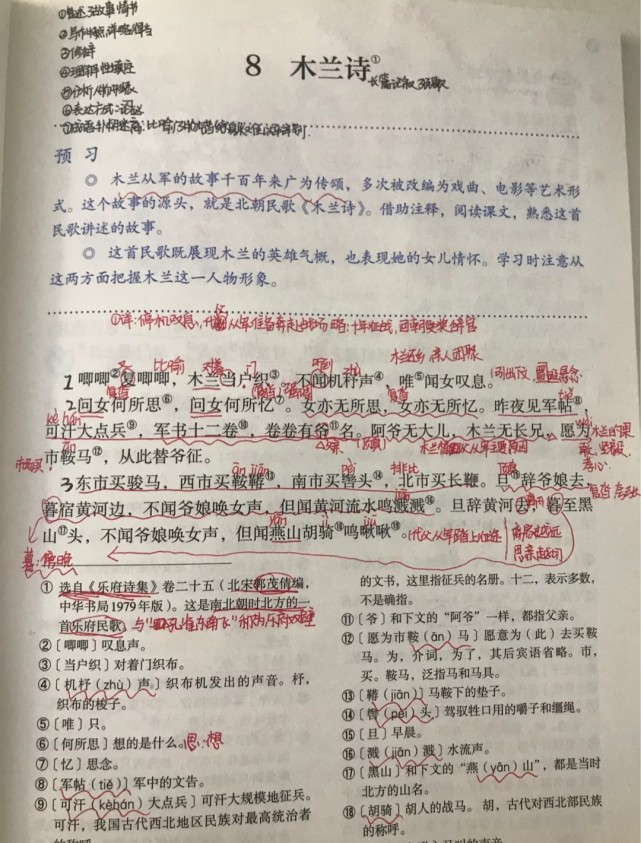 ①概述故事情节
②写作特点:详略得当
③修辞
⑤分析人物形象
8 木兰诗①
长篇叙事诗
预 习
◎ 木兰从军的故事千百年来广为传颂，多次被改编为戏曲、电影等艺术形
式。这个故事的源头，就是北朝民歌《木兰诗》。借助注释，阅读课文，熟悉这首
民歌讲述的故事。
◎ 这首民歌既展现木兰的英雄气概，也表现她的女儿情怀。学习时注意从
这两方面把握木兰这一人物形象。
比喻
木兰还乡 亲人团聚
1唧唧②复唧唧，木兰当户织③。不闻机杼声④，唯⑤闻女叹息。
2问女何所思⑥，问女何所忆⑦。女亦无所思，女亦无所忆。昨夜见军帖⑧，
kè hán
可汗大点兵⑨，军书十二卷⑩，卷卷有爷⑪名。阿爷无大儿，木兰无长兄，愿为
市鞍马⑫，从此替爷征。
ān jiān
排比
3东市买骏马，西市买鞍鞯⑬，南市买辔头⑭，北市买长鞭。旦⑮辞爷娘去，
暮宿黄河边，不闻爷娘唤女声，但闻黄河流水鸣溅溅⑯。旦辞黄河去，暮至黑
yān
jiū
山⑰头，不闻爷娘唤女声，但闻燕山胡骑⑱鸣啾啾⑲。
暮:傍晚
① 选自《乐府诗集》卷二十五（北宋郭茂倩编，
中华书局1979年版）。这是南北朝时北方的一
首乐府民歌。
与“孔雀东南飞”称为乐府双璧
②〔唧唧〕叹息声。
③〔当户织〕对着门织布。
④〔机杼（zhù）声〕织布机发出的声音。杼，
织布的梭子。
⑤〔唯〕只。
⑥〔何所思〕想的是什么。思:想
⑦〔忆〕思念。
⑧〔军帖（tiě）〕军中的文告。
⑨〔可汗（kèhán）大点兵〕可汗大规模地征兵。
可汗，我国古代西北地区民族对最高统治者
的称呼。
的文书，这里指征兵的名册。十二，表示多数，
不是确指。
⑪〔爷〕和下文的“阿爷”一样，都指父亲。
⑫〔愿为市鞍（ān）马〕愿意为（此）去买鞍
马。为，介词，为了，其后宾语省略。市，
买。鞍马，泛指马和马具。
⑬〔鞯（jiān）〕马鞍下的垫子。
⑭〔辔（pèi）头〕驾驭牲口用的嚼子和缰绳。
⑮〔旦〕早晨。
⑯〔溅（jiān）溅〕水流声。
⑰〔黑山〕和下文的“燕（yān）山”，都是当时
北方的山名。
⑱〔胡骑〕胡人的战马。胡，古代对西北部民族
的称呼。